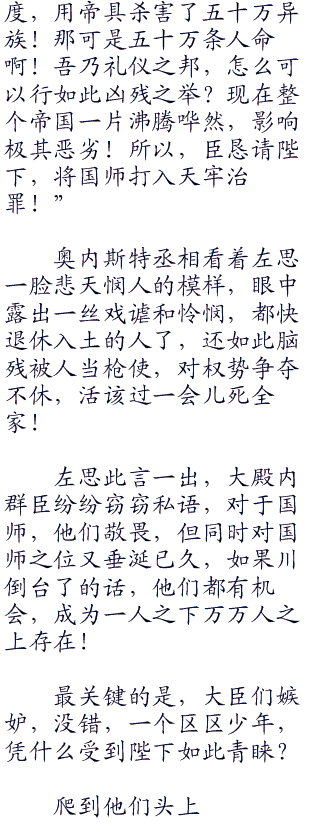 度，用帝具杀害了五十万异
族！那可是五十万条人命
啊！吾乃礼仪之邦，怎么可
以行如此凶残之举？现在整
个帝国一片沸腾哗然，影响
极其恶劣！所以，臣恳请陛
下，将国师打入天牢治
罪！”
奥内斯特丞相看着左思
一脸悲天悯人的模样，眼中
露出一丝戏谑和怜悯，都快
退休入土的人了，还如此脑
残被人当枪使，对权势争夺
不休，活该过一会儿死全
家！
左思此言一出，大殿内
群臣纷纷窃窃私语，对于国
师，他们敬畏，但同时对国
师之位又垂涎已久，如果川
倒台了的话，他们都有机
会，成为一人之下万万人之
上存在！
最关键的是，大臣们嫉
妒，没错，一个区区少年，
凭什么受到陛下如此青睐？
爬到他们头上